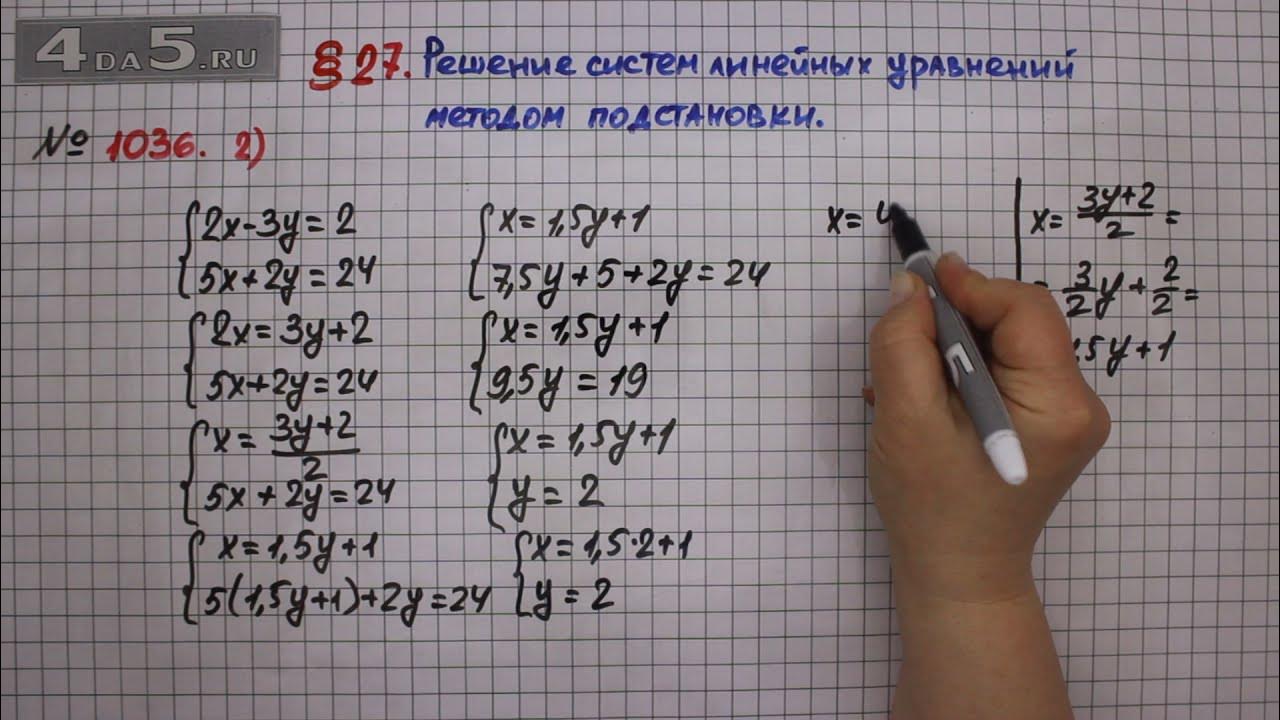 4DA5.RU
§27. Решение систем линейных уравнений
методом подстановки.
№ 1036. 2)
{2x-3y=2
{5x+2y=24
{2x=3y+2
{5x+2y=24
{x=(3y+2)/2
{5x+2y=24
{x=1,5y+1
{5(1,5y+1)+2y=24
{x=1,5y+1
{7,5y+5+2y=24
{x=1,5y+1
{9,5y=19
{x=1,5y+1
{y=2
{x=1,5·2+1
{y=2
x=4
x=(3y+2)/2=
=3/2y+2/2=
5y+1